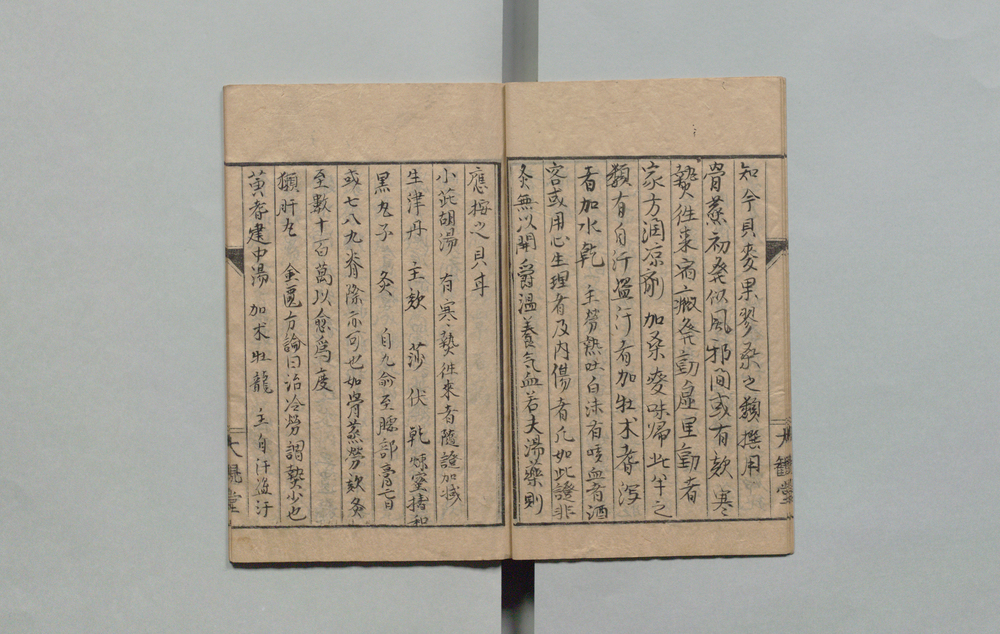 知今貝麥果翏桑之類撰用
骨蒸初發似風邪間或有欬寒
熱徃来宿瘀發動虚里動者
家方潤凉劑加桑麥味帰此半之
類有自汗盗汗有加牡术耆瀉
者加水乾 主勞熱吐白沫有咳血者酒
客或用心生理者及内傷者凢如此證非
灸無以開爵溫養气血若夫湯藥則
應桉之貝耳
小茈胡湯 有寒熱徃來者隨證加减
生津丹 主欬 莎 伏 乹 煉蜜揞和
黒丸子 灸 自九俞至腰部膏肓
或七八九脊際亦可也如骨蒸勞欬灸
至數十百萬以愈為度
獺肝丸 金匱方論曰治冷勞謂熱少也
黄耆建中湯 加术牡龍 主自汗盗汗
大觀堂
大觀堂